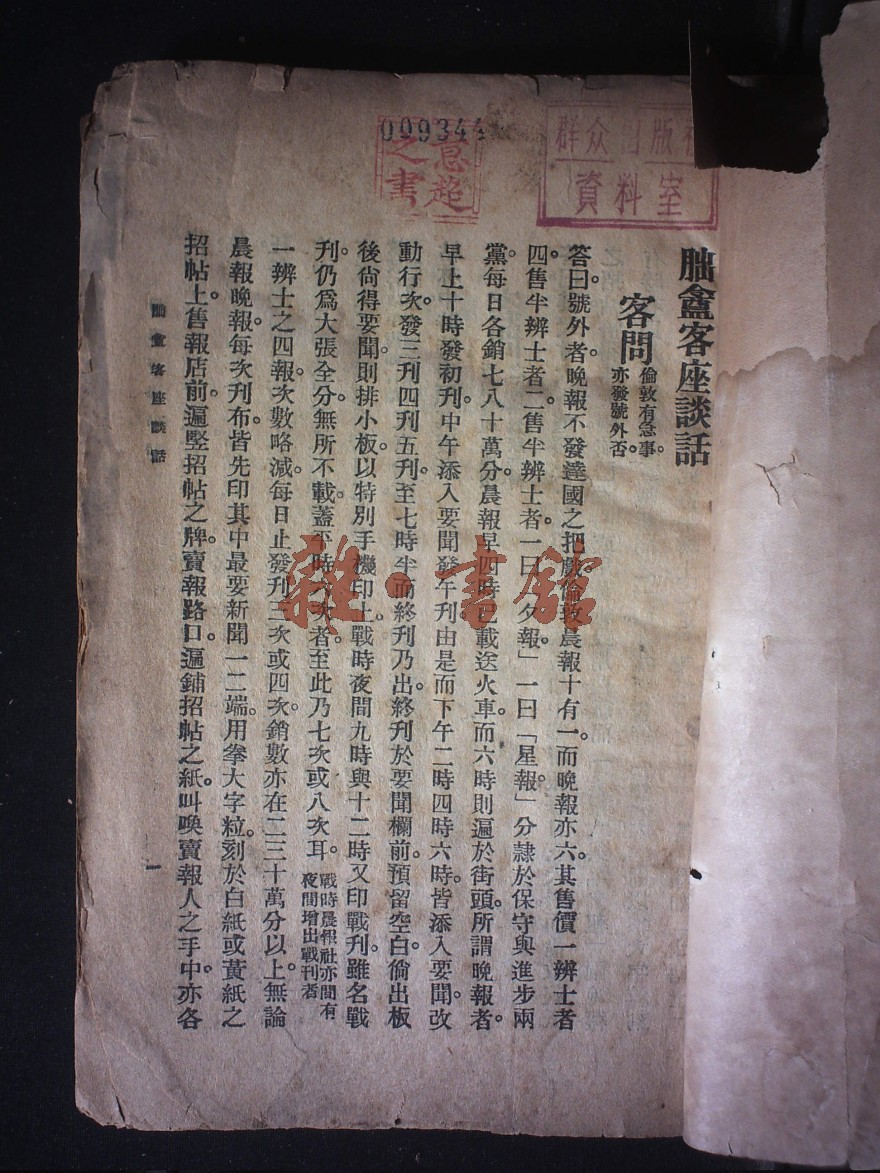 009344
意超之書
群众出版社
資料室
朏盦客座談話
客問
倫敦有急事。
亦發號外否。
答曰。號外者。晚報不發達國之把戲。倫敦晨報十有一。而晚報亦六。其售價一辨士者
四。售半辨士者二。售半辨士者。一曰「夕報」一曰「星報」分隸於保守與進步兩
黨。每日各銷七八十萬分。晨報早四時已載送火車。而六時則遍於街頭。所謂晚報者。
早上十時發初刊。中午添入要聞發午刊。由是而下午二時四時六時。皆添入要聞。改
動行次。發三刊四刊五刊。至七時半而終刊乃出。終刊於要聞欄前。預留空白。倘出板
後尙得要聞。則排小板。以特別手機印上。戰時夜間九時與十二時又印戰刊。雖名戰
刊。仍爲大張全分。無所不載。蓋平時六次者。至此乃七次或八次耳。
戰時晨報社亦間有
夜間增出戰刊者
一辨士之四報。次數略減。每日止發刊三次或四次。銷數亦在二三十萬分以上。無論
晨報晚報。每次刊布。皆先印其中最要新聞一二端。用拳大字粒。刻於白紙或黃紙之
招帖上。售報店前。遍竪招帖之牌。賣報路口。遍鋪招帖之紙。叫喚賣報人之手中。亦各
朏盦客座談話
一
雜·書館